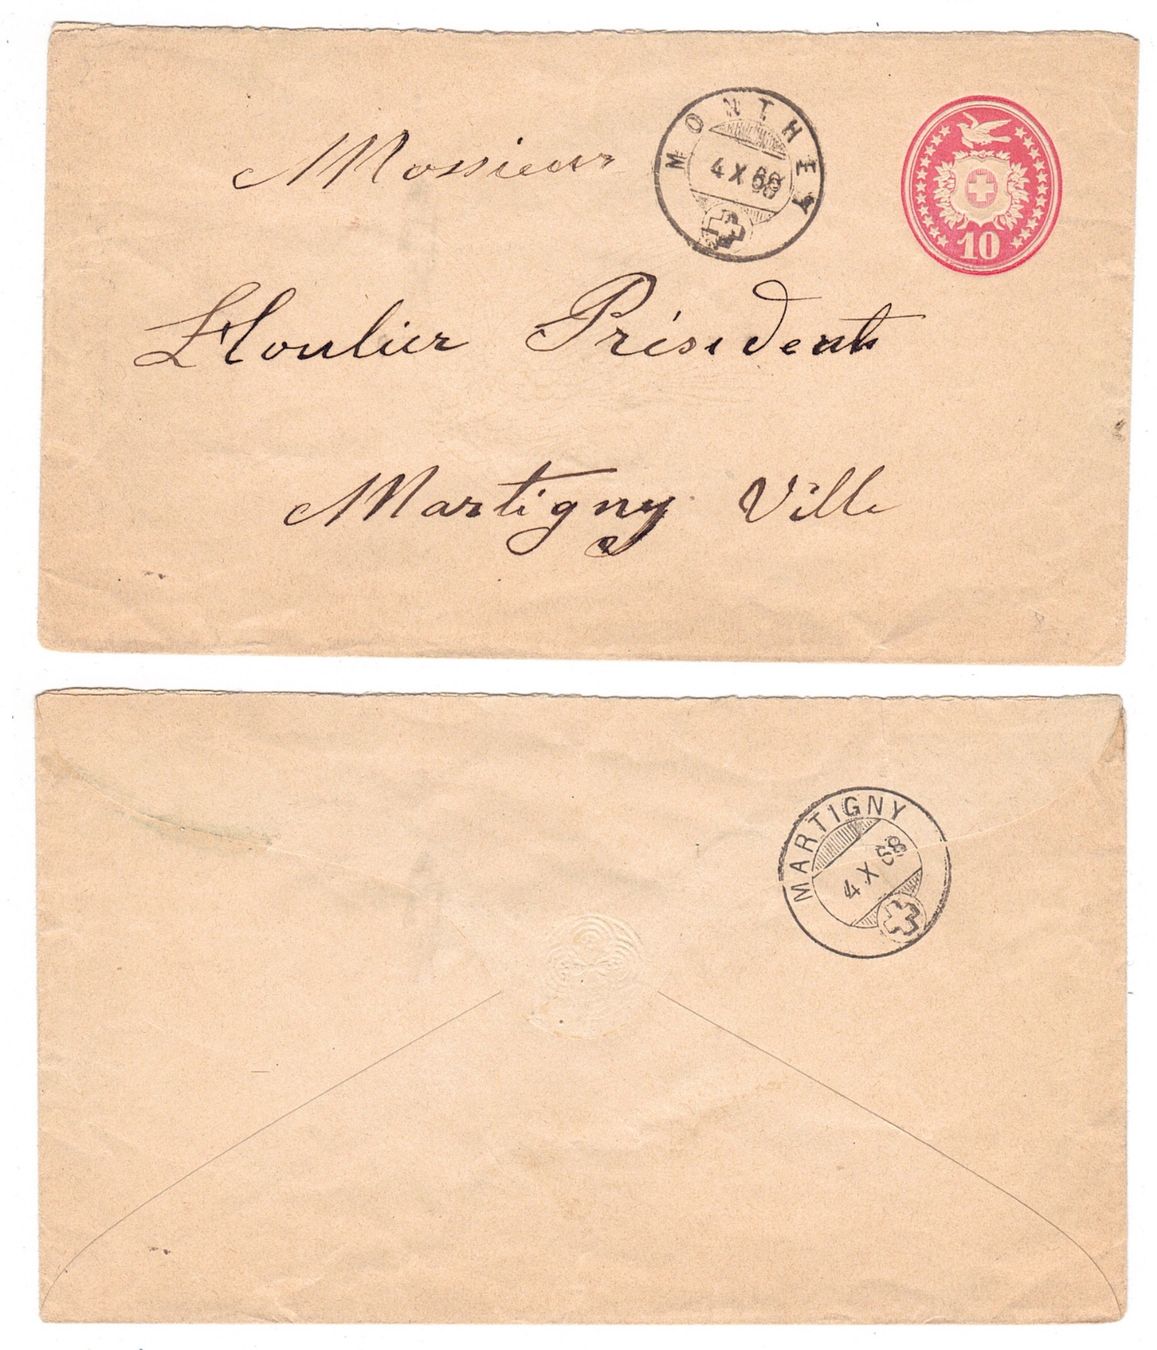 MONTHEY
4 X 88
10
Monsieur
Houlier Président
Martigny Ville
MARTIGNY
4 X 88